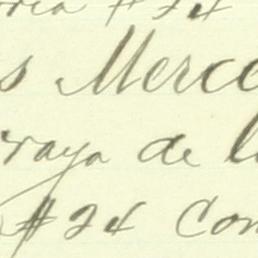 #24
s Merce
raya de l
#24 Con